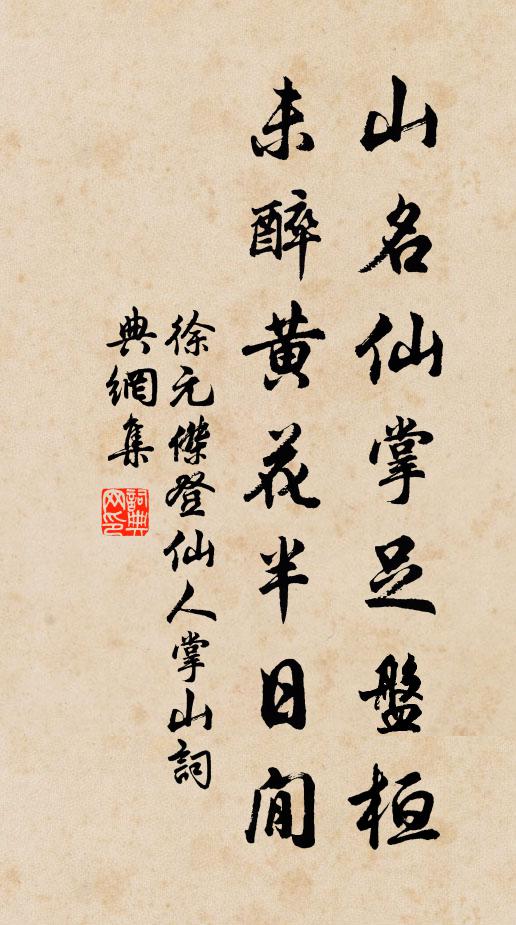 山名仙掌足盤桓
未醉黄花半日閒
徐元傑登仙人掌山詞
典網集
詞典網印